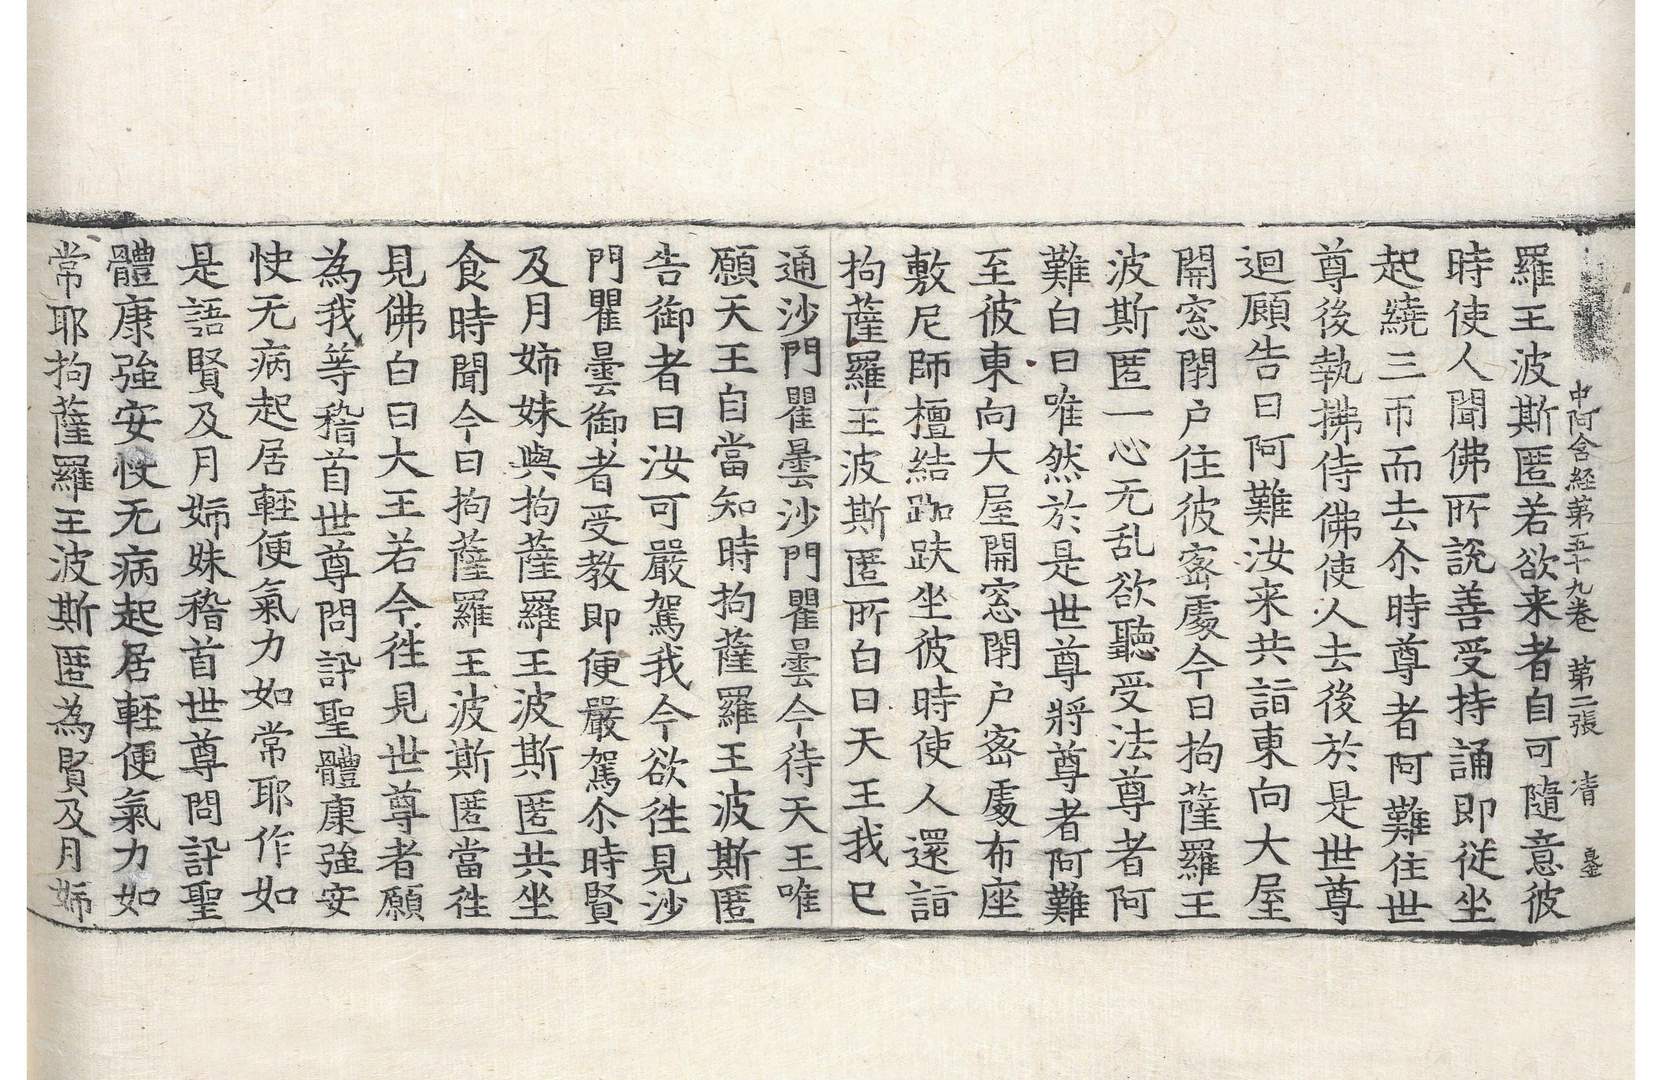 中阿含経第五十九巻 第二張 清
羅王波斯匿若欲来者自可隨意彼
時使人聞佛所說善受持誦即從坐
起繞三帀而去尒時尊者阿難住世
尊後執拂侍佛使人去後於是世尊
迴顧告曰阿難汝来共詣東向大屋
開窓閉户住彼宻處今日拘薩羅王
波斯匿一心无乱欲聽受法尊者阿
難白曰唯然於是世尊將尊者阿難
至彼東向大屋開窓閉户宻處布座
敷尼師檀結跏趺坐彼時使人還詣
拘薩羅王波斯匿所白曰天王我已
通沙門瞿曇沙門瞿曇今待天王唯
願天王自當知時拘薩羅王波斯匿
告御者曰汝可嚴駕我今欲徃見沙
門瞿曇御者受教即便嚴駕尒時賢
及月姉妹與拘薩羅王波斯匿共坐
食時聞今日拘薩羅王波斯匿當徃
見佛白曰大王若今徃見世尊者願
為我等稽首世尊問訊聖體康強安
快无病起居輕便氣力如常耶作如
是語賢及月姉妹稽首世尊問訊聖
體康強安快无病起居輕便氣力如
常耶拘薩羅王波斯匿為賢及月姉